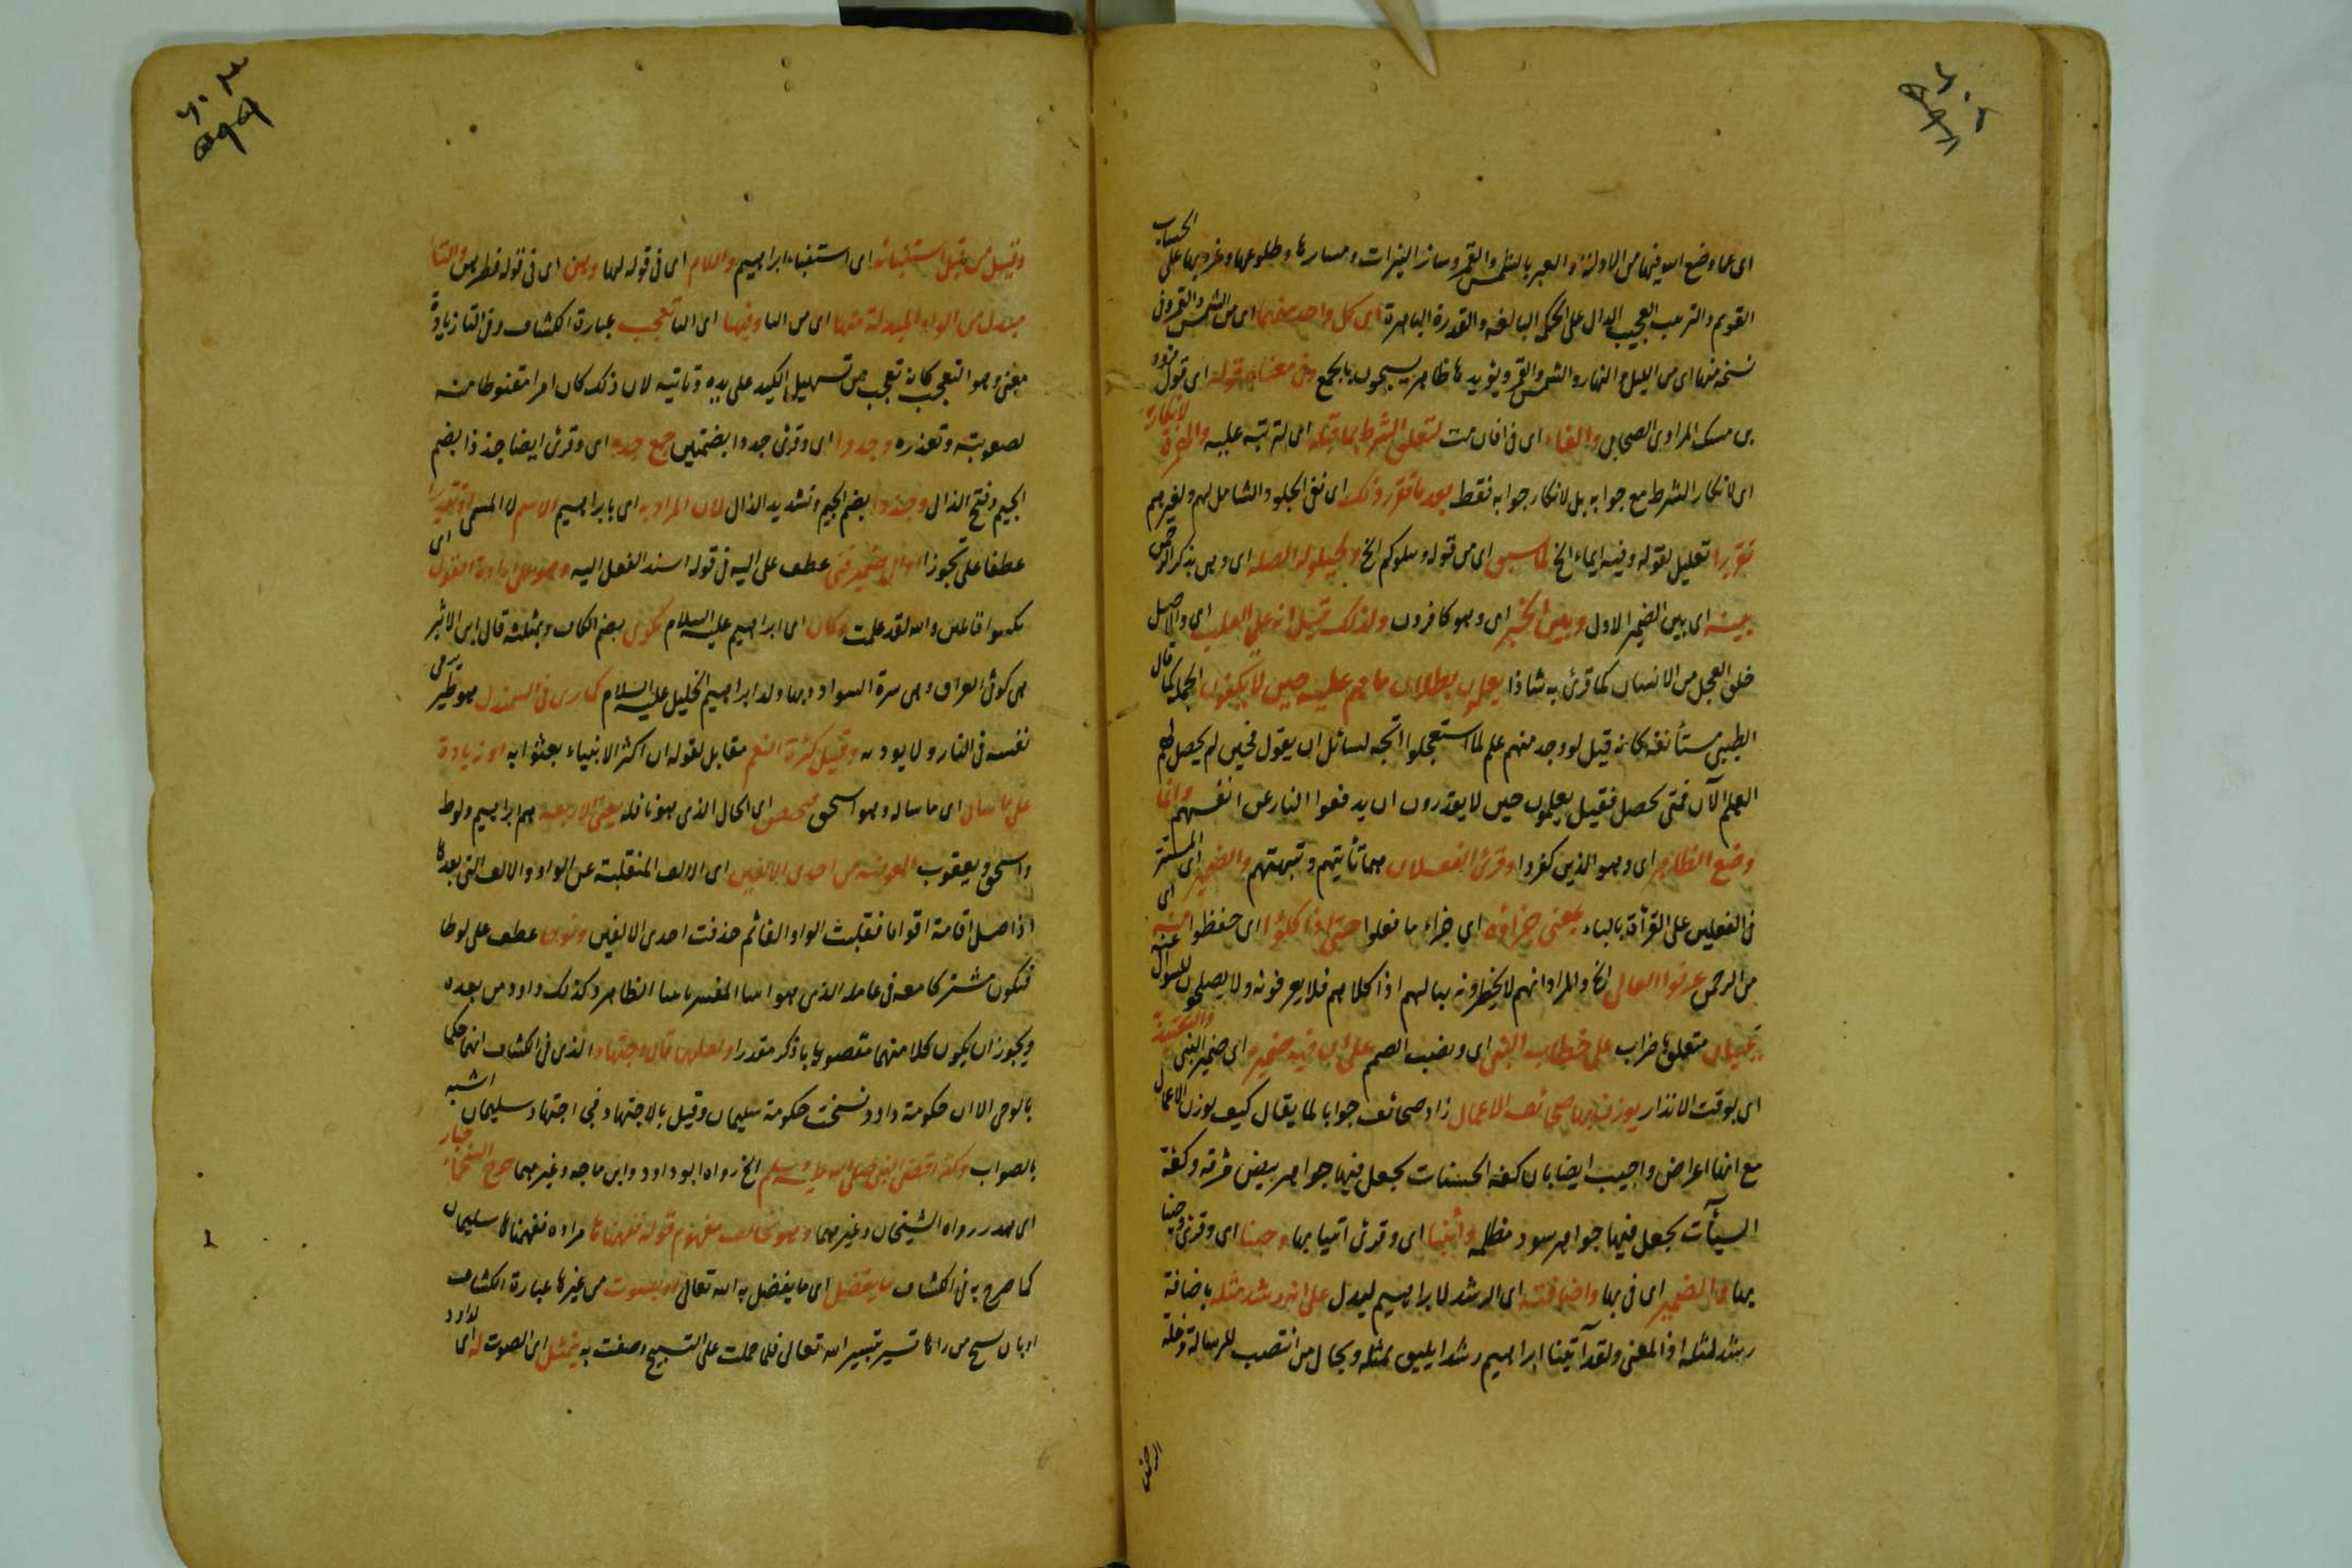 اى عما وضع الله فيها من الادلة والعبر بالشمس والقمر وسائر النيرات ومسارها وطلوعها وغروبها على الحساب
القويم والترتيب العجيب الدال على الحكمة البالغة والقدرة الباهرة اى كل واحد منهما اى من الشمس والقمر وفى
نسخة منها اى من الليل والنهار والشمس والقمر ويؤيدها ظاهر يسبحون بالجمع وفى معناه قوله اى قول
بن مسيك المرادى الصحابى والفاء اى فى افان مت لتعلق الشرط بما قبله اى لترتبه عليه والهمزة لانكاره
اى لانكار الشرط مع جوابه بل لانكار جوابه فقط بعد ما تقرر ذلك اى نفى الخلد والشامل لهم ولغيرهم
تقريرا تعليل لقوله وفيه ايماء الخ لما سبق اى من قوله ونبلوكم الخ ولحيلولة الصلة اى وهى بذكر الرحمن
بينه اى بين الضمير الاول وبين الخبر اى وهو كافرون ولذلك قيل انه على القلب اى والاصل
خلق العجل من الانسان كما قرئ به شاذا يعلمون بطلان ما هم عليه حين لا يكفون الجملة كما قال
الطيبى مستأنفة كانه قيل لو وجد منهم علم لما استعجلوا اتجه لسائل ان يقول فحين لم يحصل لهم
العلم الآن فمتى يحصل فقيل يعلمون حين لا يقدرون ان يدفعوا النار عن انفسهم وانما
وضع الظاهر اى وهو الذين كفروا وقرئ الفعلان هما تأتيهم وتبهتهم والضمير اى المستتر
فى الفعلين على القرأة بالياء يعنى جزاؤه اى جزاء ما فعلوا حتى اذا كلئوا اى حفظوا منه اى
من الرحمن عرفوا الخ والمراد انهم لا يخطرونه ببالهم اذا كلاهم فلا يعرفونه ولا يصلحون للسوال عنه
متعلق على خطاب النبى اى ونصب الصم على ان فيه ضميره اى ضمير النبى والتقييد
اى بوقت الانذار يوزن بها صحائف الاعمال زاد صحائف جوابا لما يقال كيف يوزن الاعمال
مع انها اعراض واجيب ايضا بان كفة الحسنات يجعل فيها جواهر بيض مشرقة وكفة
السيآت يجعل فيها جواهر سود مظلمة وأتينا اى وقرئ اتينا بها وجئنا اى وقرئ وجئنا
بها والضمير اى فى بها واضافته اى الرشد لابراهيم ليدل على انه رشد مثله باضافة
رشد لمثله اذ المعنى ولقد آتينا ابراهيم رشدا يليق بمثله وبحال من انتصب للرسالة وخلة
الرحمن
وقيل من قبل استنبائه اى استنباء ابراهيم واللام اى فى قوله لها وهن اى فى قوله فطرهن والتا
بدل من الواو المبدلة منها اى من البا وفيها اى التا تعجب عبارة الكشاف وفى التا زيادة
معنى وهو التعجب كانه تعجب من تسهيل الكيد على يده وتاتيه لان ذلك كان امرا مقنوطا منه
لصعوبته وتعذره وجذذا اى وقرئ جذذا بضمتين جمع جذيذ اى وقرئ ايضا جذذا بضم
الجيم وفتح الذال وجذذا بضم الجيم وتشديد الذال لان المراد به اى بابراهيم الاسم لا المسمى او تقديرا
عطفا على تجوزا او الى ضمير فتى عطف على اليه فى قوله اسند الفعل اليه وهو على ارادة القول اى
نكسوا قائلين والله لقد علمت وكان اى ابراهيم عليه السلام بكوثى بضم الكاف وبمثلثة قال ابن الاثير
هى كوثى العراق وهى سرة السواد وبها ولد ابراهيم الخليل عليه السلام كما ترى فى السمندل هو طير يرمى
نفسه فى النار ولا يوذيه وقيل كثرة النعم مقابل لقوله ان اكثر الانبياء بعثوا به او زيادة
على ما سال اى ما ساله وهو اسحق اى الحال الذى هو نافلة يعنى الاربعة هم ابراهيم ولوط
واسحق ويعقوب المعوضة من احدى الالفين اى الالف المنقلبة عن الواو والالف التى بعدها
اذ اصل اقامة اقواما فقلبت الواو الفا ثم حذفت احدى الالفين ونوحا عطف على لوطا
فتكون مشتركا معه فى عامله الذى هو اتينا المفسر باتينا الظاهر وكذلك داود من بعده
ويجوز ان يكون كلا منهما مقصوبا باذكر مقدرا ولعلهما قالا اجتهادا الذى فى الكشاف انهما حكما
بالوحى الا ان حكومة داود نسخت حكومة سليمان وقيل بالاجتهاد فجى اجتهاد سليمان اشبه
بالصواب وكذا قضى النبى صلى الله عليه وسلم الخ رواه ابو داود وابن ماجه وغيرهما جرح العجماء جبار
اى هدر رواه الشيخان وغيرهما وهو يخالف مفهوم قوله ففهمناها مراده ففهمناها سليمان
كما صرح به فى الكشاف ما يفضل اى ما يفضل به الله تعالى او بصوت من غيرها عبارة الكشاف
او بان يسبح من رآها تسير بتسيير الله تعالى فلما حملت على التسبيح وصفت به يتمثل اى الصوت له اى لداود